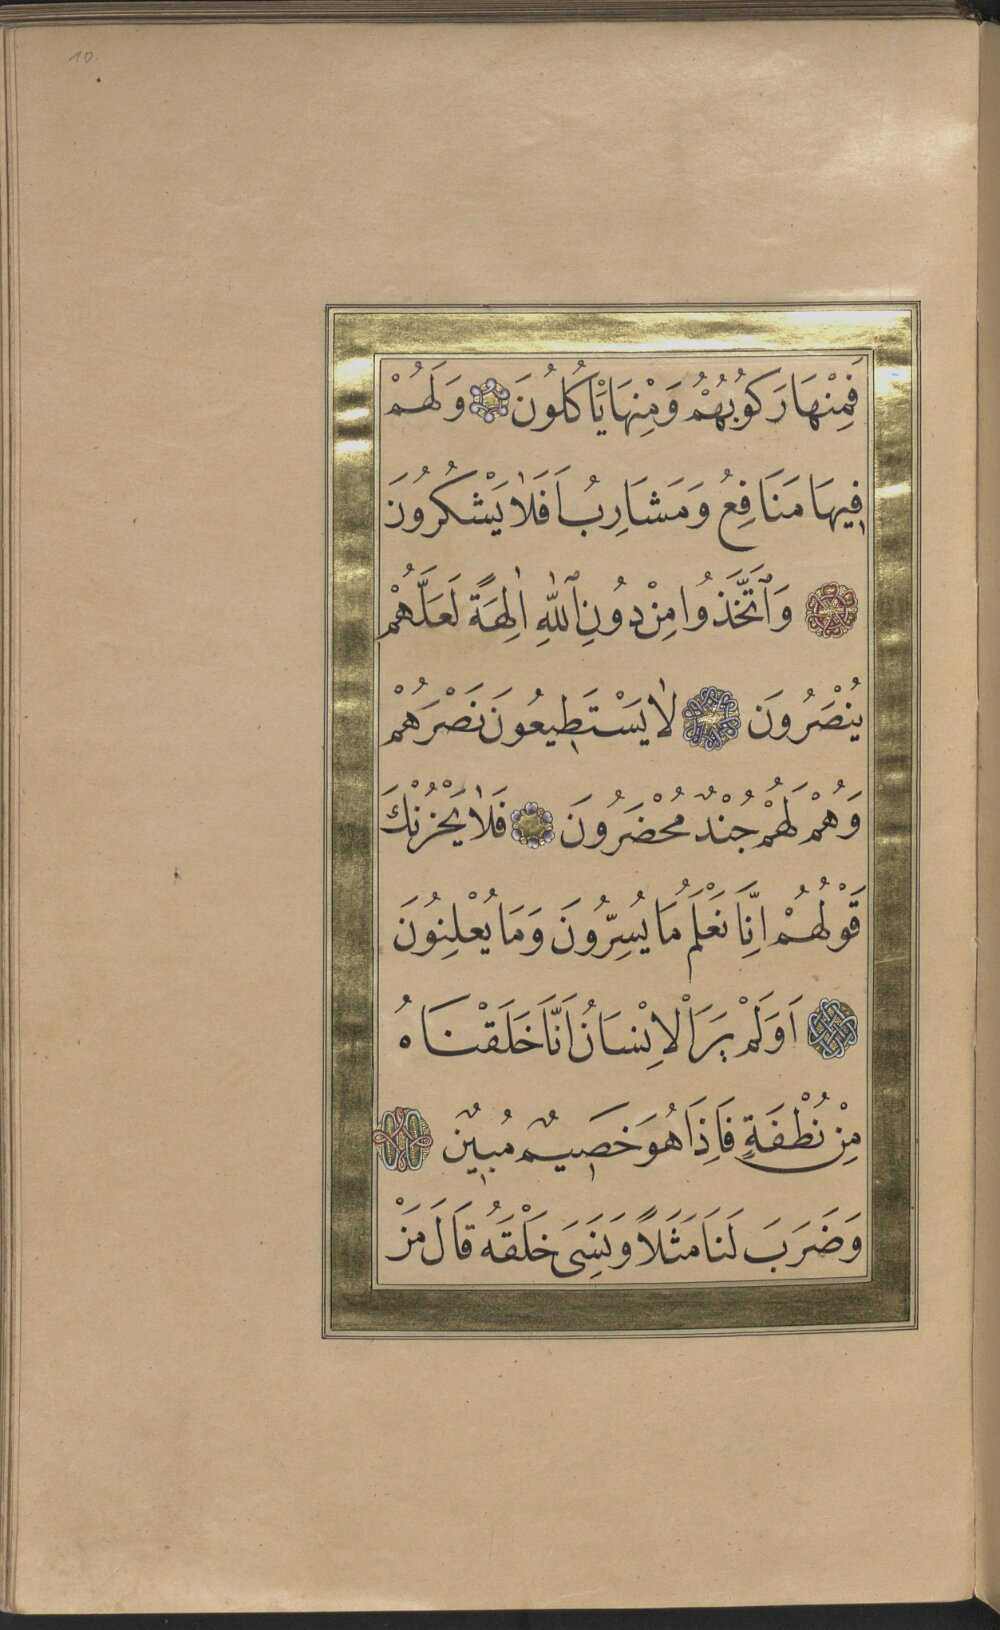 10
فَمِنْهَا رَكُوبُهُمْ وَمِنْهَا يَاْكُلُونَ وَلَهُمْ
فِيهَا مَنَافِعُ وَمَشَارِبُ اَفَلَا يَشْكُرُونَ
وَٱتَّخَذُوا مِنْ دُونِ ٱللّٰهِ اٰلِهَةً لَعَلَّهُمْ
يُنْصَرُونَ لَا يَسْتَطِيعُونَ نَصْرَهُمْ
وَهُمْ لَهُمْ جُنْدٌ مُحْضَرُونَ فَلَا يَحْزُنْكَ
قَوْلُهُمْ اِنَّا نَعْلَمُ مَا يُسِرُّونَ وَمَا يُعْلِنُونَ
اَوَلَمْ يَرَ الْاِنْسَانُ اَنَّا خَلَقْنَاهُ
مِنْ نُطْفَةٍ فَاِذَا هُوَ خَصِيمٌ مُبِينٌ
وَضَرَبَ لَنَا مَثَلًا وَنَسِىَ خَلْقَهُ قَالَ مَنْ